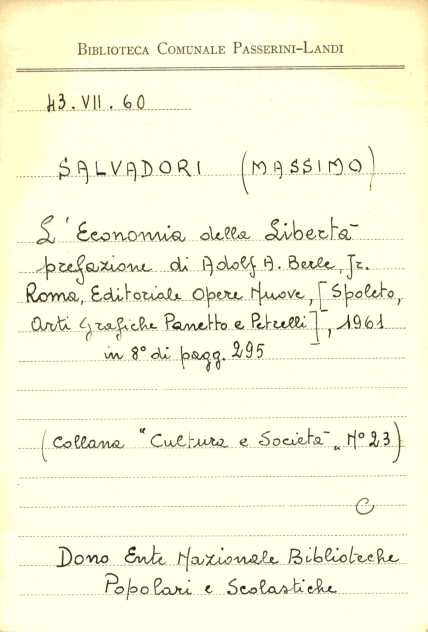 BIBLIOTECA COMUNALE PASSERINI-LANDI
43.VII.60
SALVADORI (MASSIMO)
L'Economia della Libertà
prefazione di Adolf A. Berle, Jr.
Roma, Editoriale Opere Nuove, [Spoleto,
Arti Grafiche Panetto e Petrelli], 1961
in 8° di pagg. 295
(Collana "Cultura e Società" N° 23)
C
Dono Ente Nazionale Biblioteche
Popolari e Scolastiche